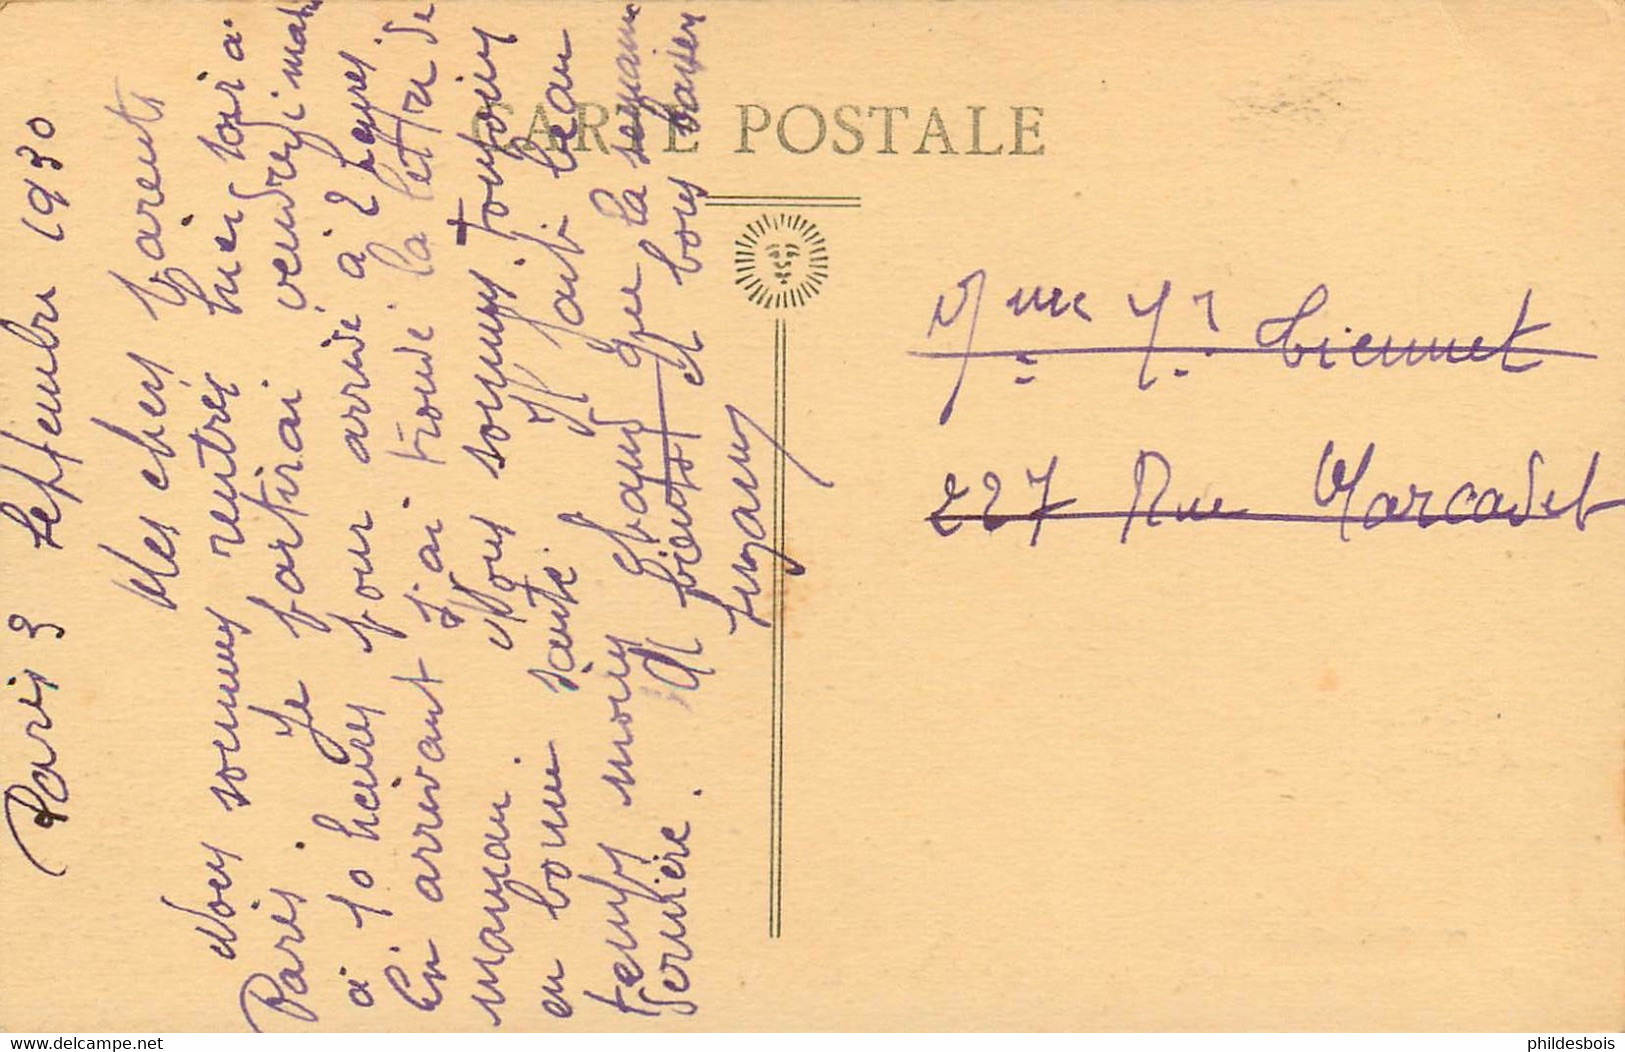 Paris 3 Septembre 1930
Mes chers Parents
Nous sommes rentrés hier soir à
Paris. Je partirai vendredi matin
à 10 heures pour arrivé à 2 heures.
En arrivant j'ai trouvé la lettre de
maman. Nous sommes toujours
en bonne santé. Il fait beau
temps moins chaud que la semaine
dernière. A bientôt et bons baisers
Suzanne
CARTE POSTALE
Mme Mr
227 Rue Marcadet
delcampe.net
phildesbois